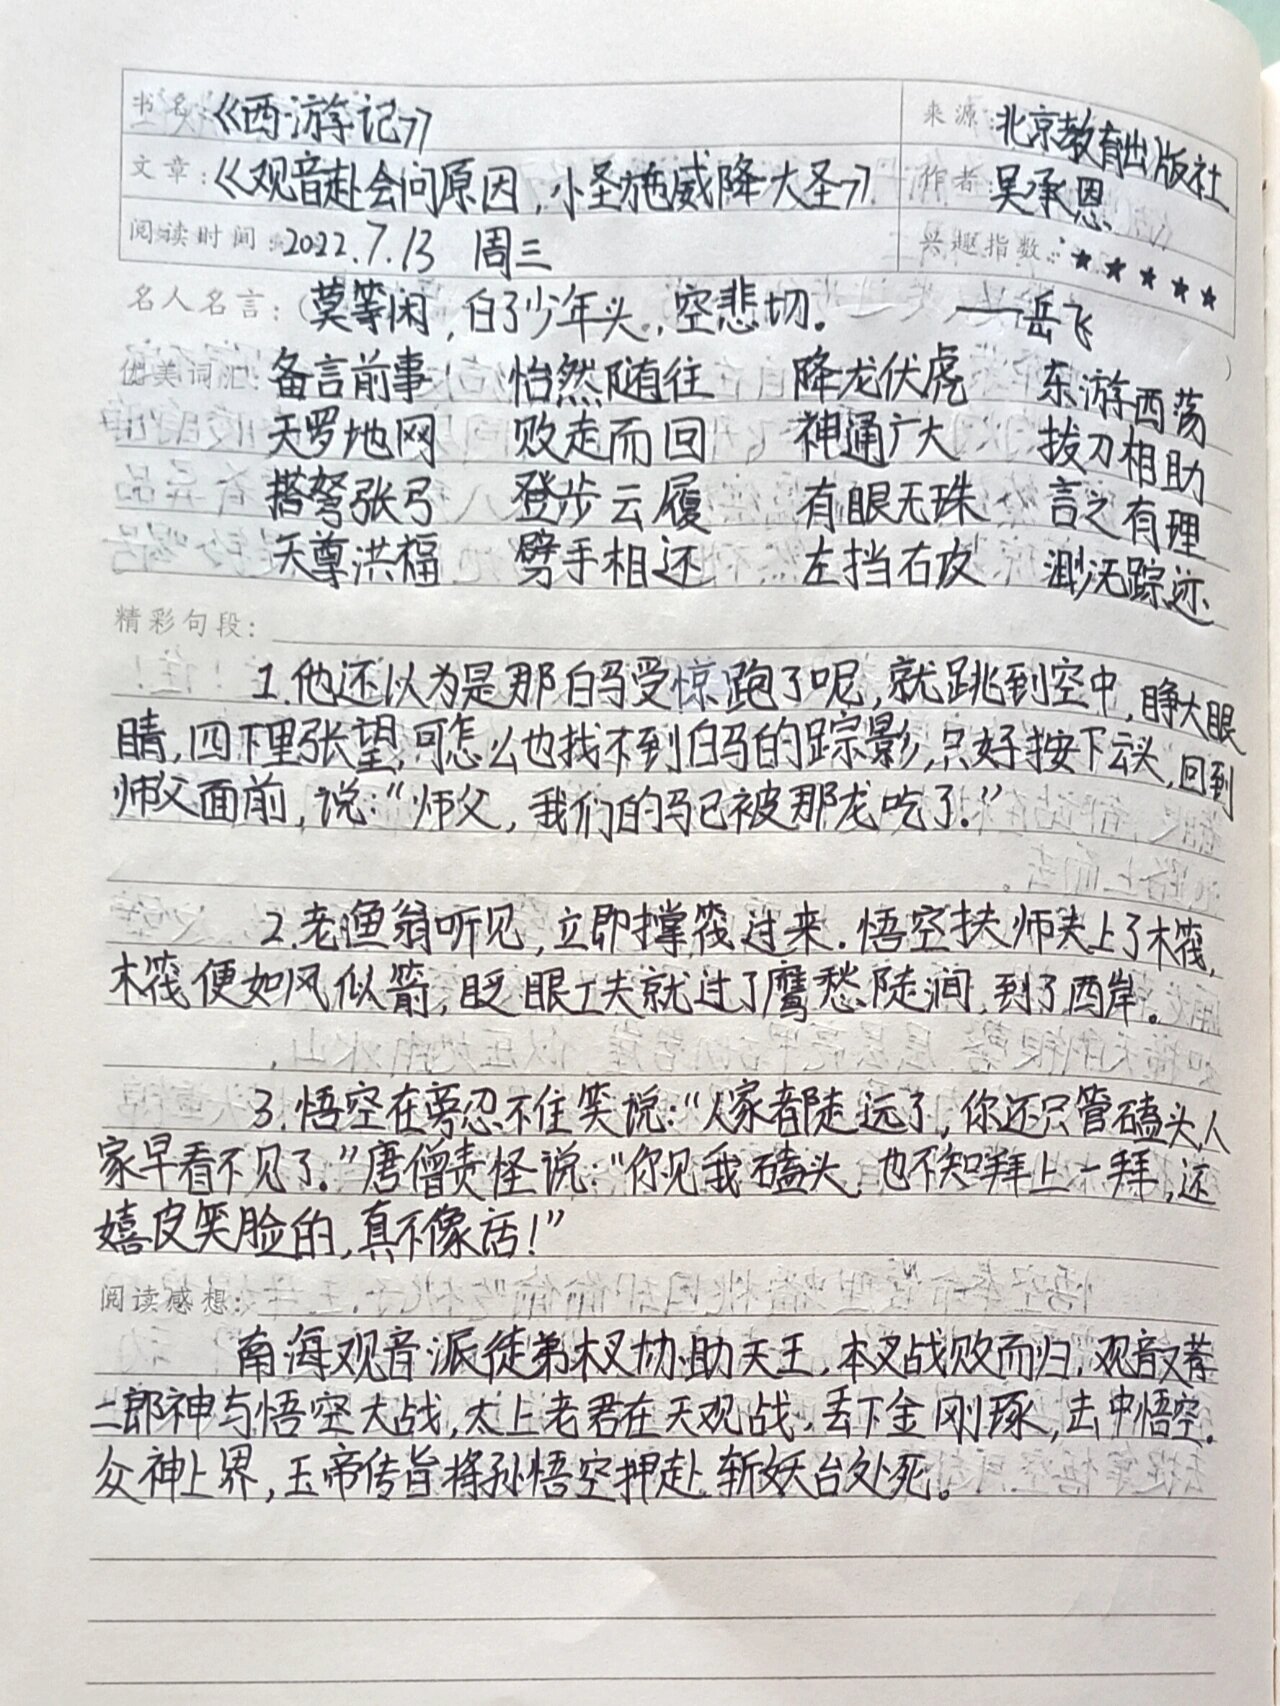 书名:《西游记》 来源:北京教育出版社
文章:《观音赴会问原因,小圣施威降大圣》 作者:吴承恩
阅读时间:2022.7.13 周三 兴趣指数:★★★★★
名人名言:(莫等闲,白了少年头,空悲切。 ——岳飞)
优美词汇:备言前事 怡然随往 降龙伏虎 东游西荡
天罗地网 败走而回 神通广大 拔刀相助
搭弩张弓 登步云履 有眼无珠 言之有理
天尊洪福 劈手相还 左挡右攻 渺无踪迹
精彩句段:
1.他还以为是那白马受惊跑了呢,就跳到空中,睁大眼
睛,四下里张望,可怎么也找不到白马的踪影,只好按下云头,回到
师父面前,说:“师父,我们的马已被那龙吃了.”
2.老渔翁听见,立即撑筏过来.悟空扶师夫上了木筏,
木筏便如风似箭,眨眼工夫就过了鹰愁陡涧,到了西岸。
3.悟空在旁忍不住笑说:“人家都走远了,你还只管磕头,人
家早看不见了.”唐僧责怪说:“你见我磕头,也不知拜上一拜,还
嬉皮笑脸的,真不像话!”
阅读感想:
南海观音派徒弟木叉协助天王,木叉战败而归,观音又荐
二郎神与悟空大战,太上老君在天观战,丢下金刚琢,击中悟空.
众神上界,玉帝传旨将孙悟空押赴斩妖台处死。